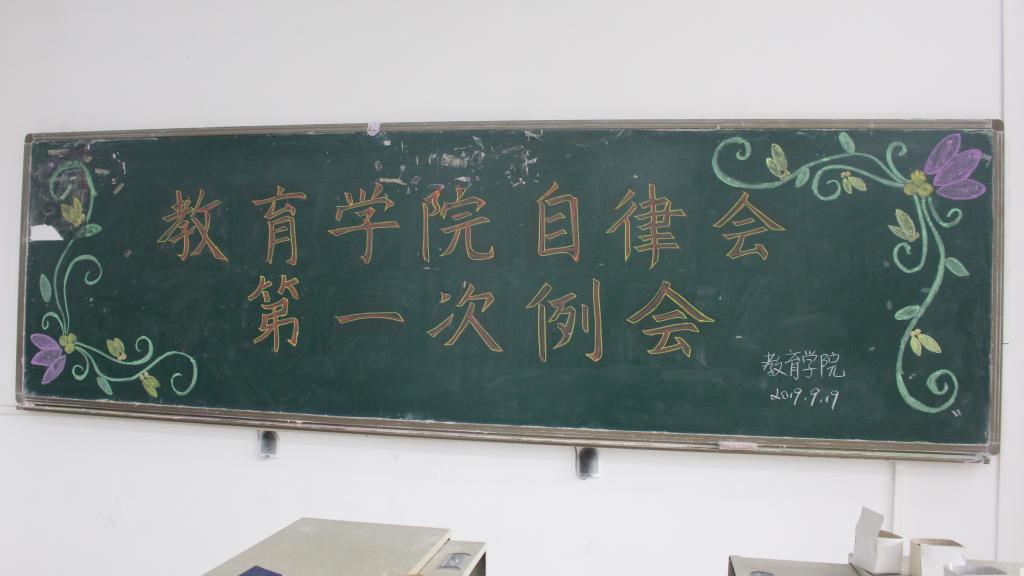 教育学院自律会
第一次例会
教育学院
2019.9.19